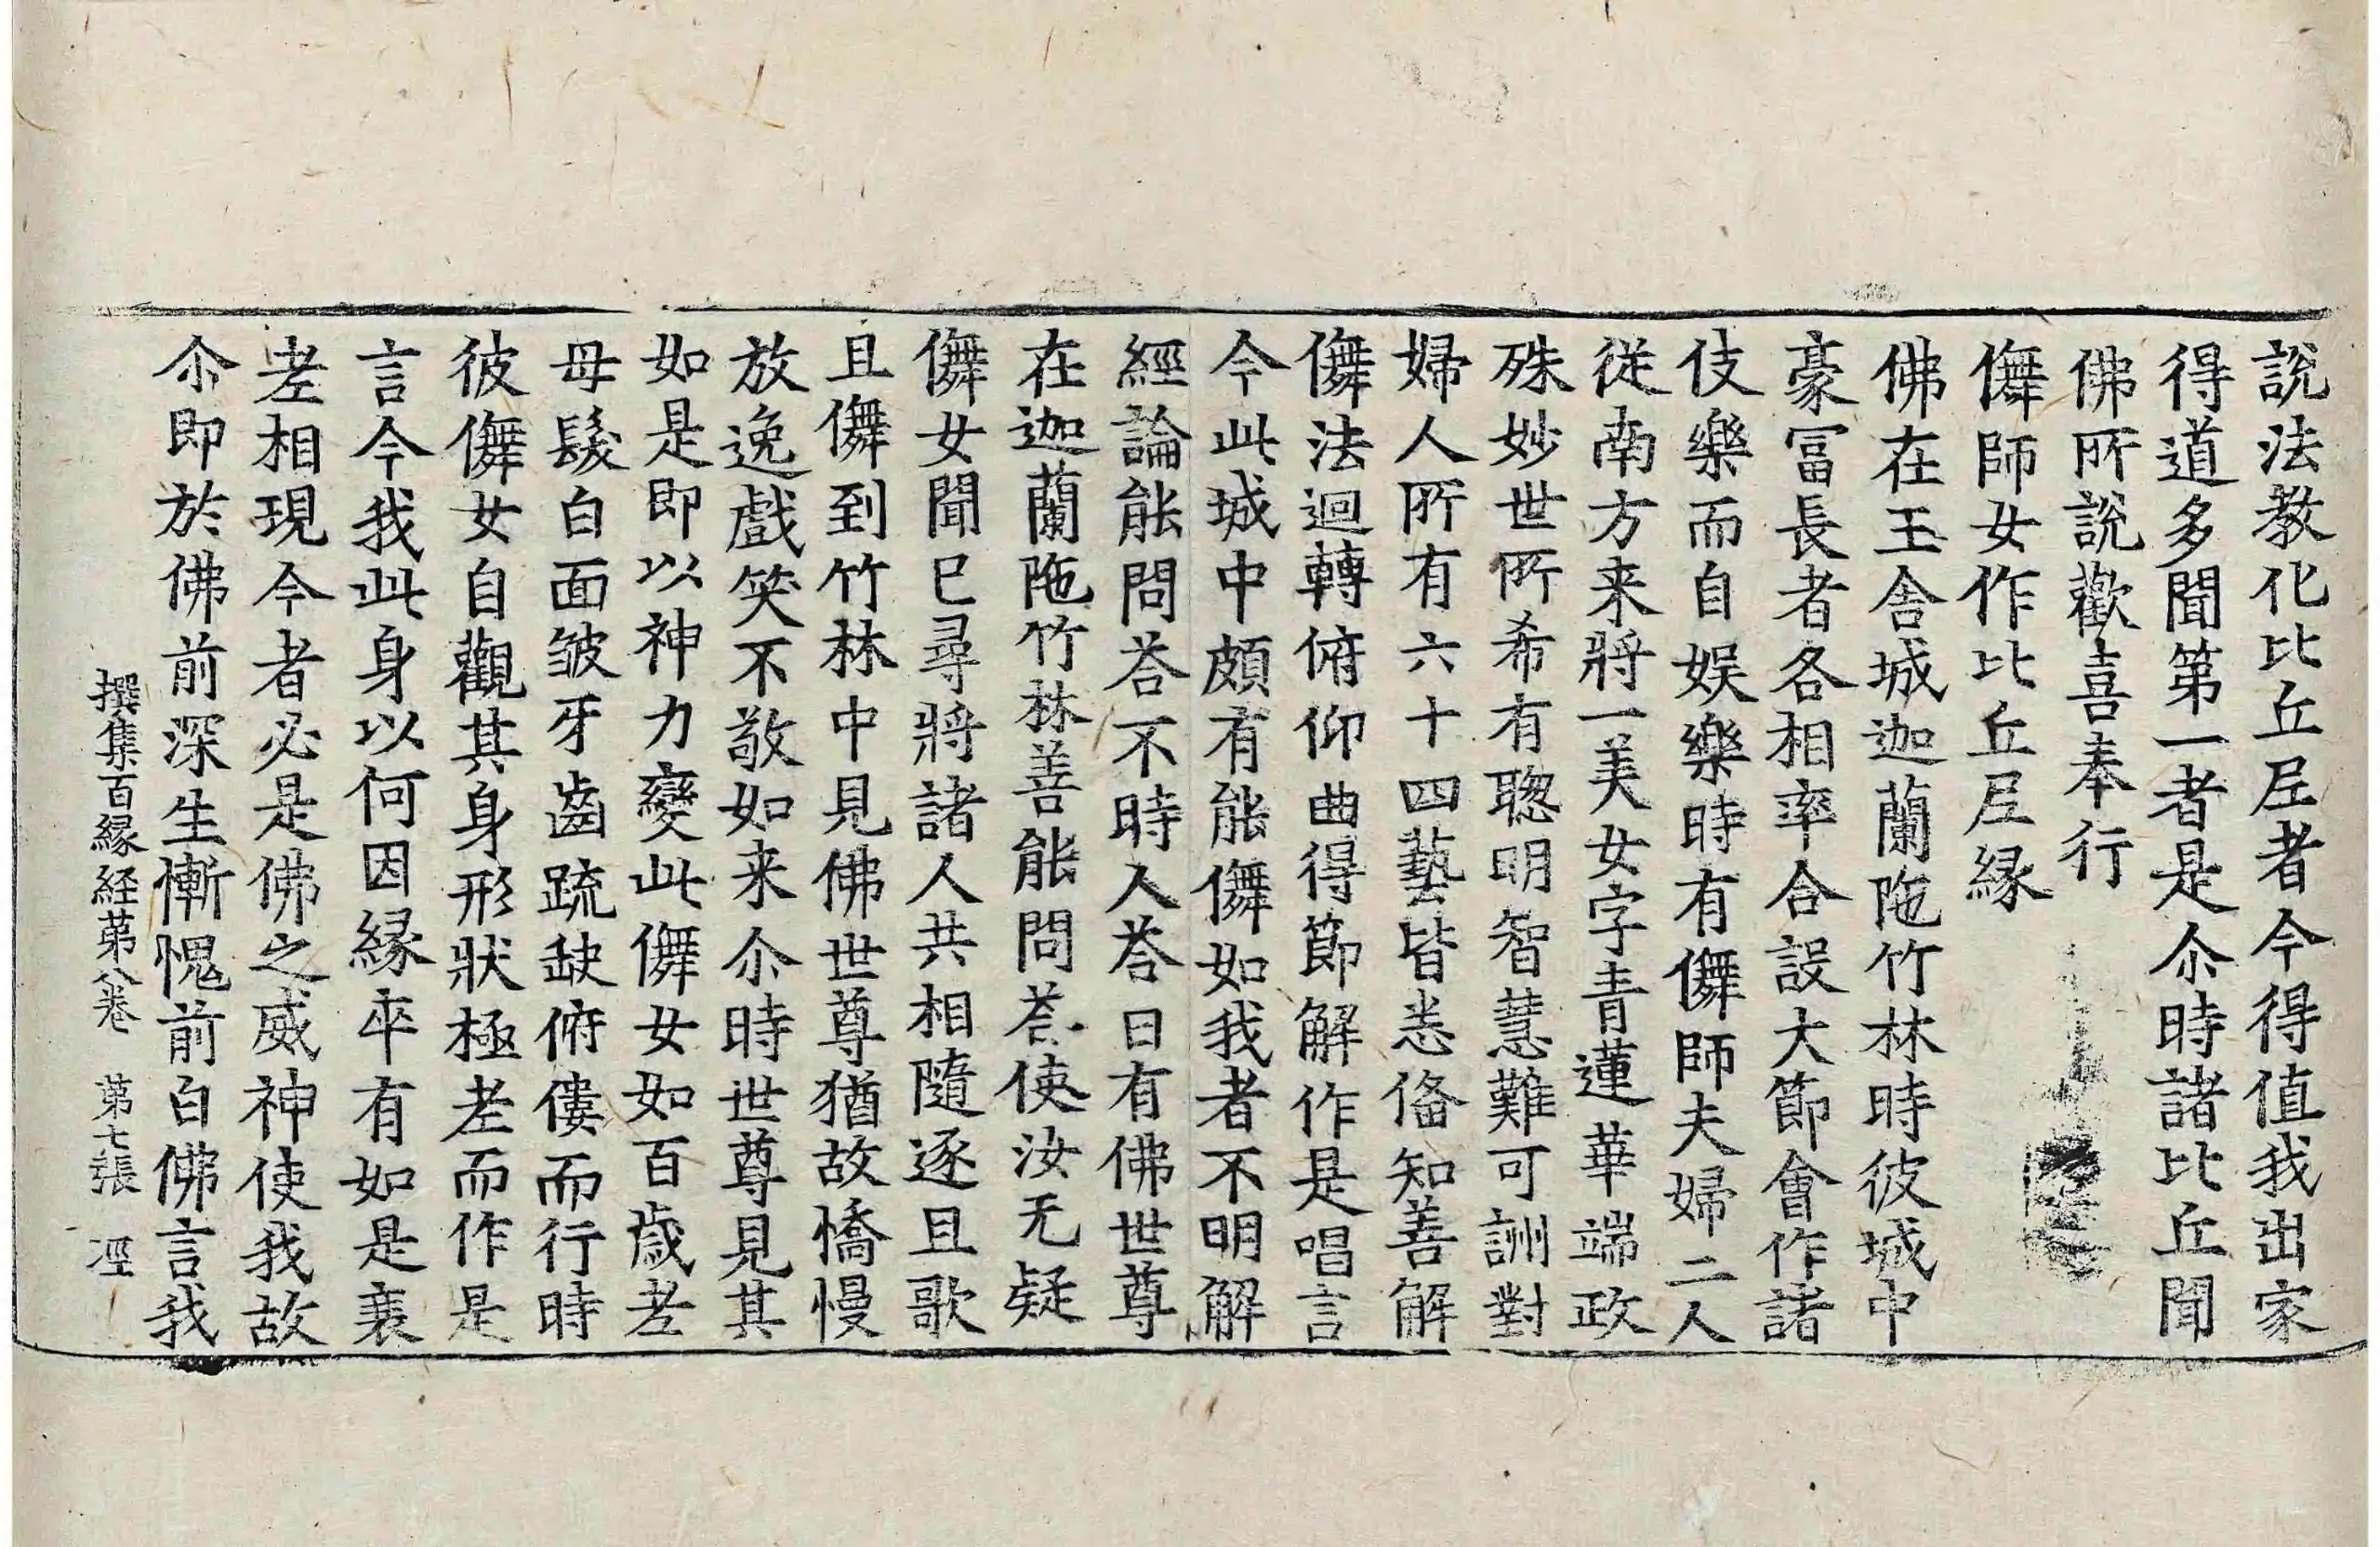 說法教化比丘尼者今得值我出家
得道多聞第一者是尒時諸比丘聞
佛所說歡喜奉行
儛師女作比丘尼緣
佛在王舍城迦蘭陁竹林時彼城中
豪冨長者各相率合設大節會作諸
伎樂而自娛樂時有儛師夫婦二人
従南方来將一美女字青蓮華端政
殊妙世所希有聦明智慧難可詶對
婦人所有六十四藝皆悉俻知善解
儛法迴轉俯仰曲得節解作是唱言
今此城中頗有能儛如我者不明解
經論能問荅不時人荅曰有佛世尊
在迦蘭陁竹林善能問荅使汝无疑
儛女聞已尋將諸人共相隨逐且歌
且儛到竹林中見佛世尊猶故憍慢
放逸戲笑不敬如来尒時世尊見其
如是即以神力變此儛女如百歲老
母髮白面皺牙齒踈缺俯僂而行時
彼儛女自觀其身形狀極老而作是
言今我此身以何因緣卒有如是衰
老相現今者必是佛之威神使我故
尒即於佛前深生慚愧前白佛言我
撰集百緣経苐八卷　第七張　𢀖